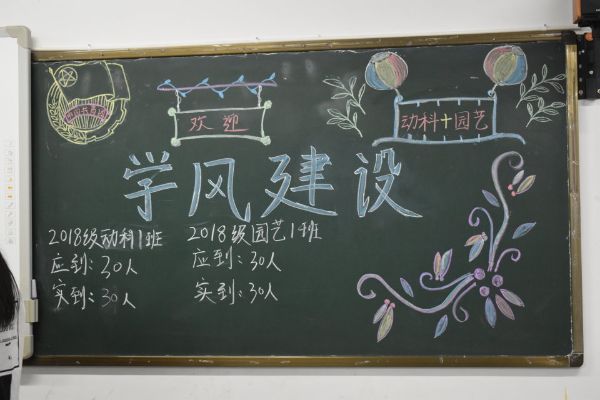 欢迎
动科+园艺
学风建设
2018级动科1班
应到:30人
实到:30人
2018级园艺1班
应到:30人
实到:30人